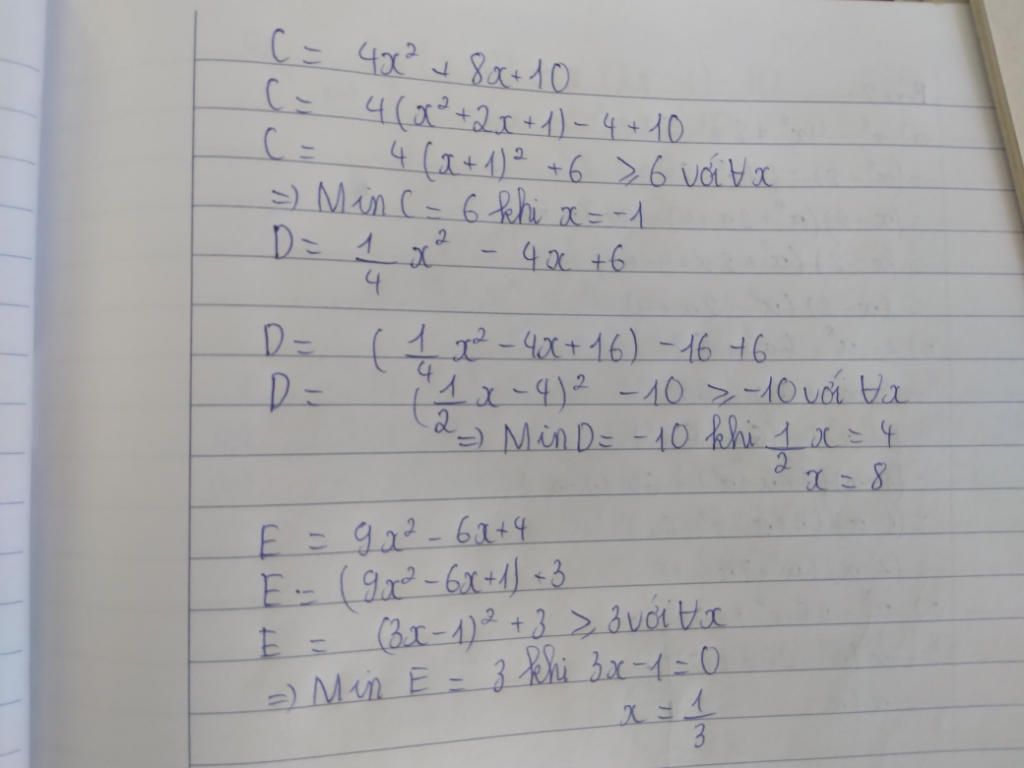 C = 4x² + 8x + 10
C = 4(x² + 2x + 1) - 4 + 10
C = 4(x + 1)² + 6 ≥ 6 với ∀x
=> Min C = 6 khi x = -1
D = 1/4 x² - 4x + 6
D = (1/4 x² - 4x + 16) - 16 + 6
D = (1/2 x - 4)² - 10 ≥ -10 với ∀x
=> Min D = -10 khi 1/2 x = 4
x = 8
E = 9x² - 6x + 4
E = (9x² - 6x + 1) + 3
E = (3x - 1)² + 3 ≥ 3 với ∀x
=> Min E = 3 khi 3x - 1 = 0
x = 1/3